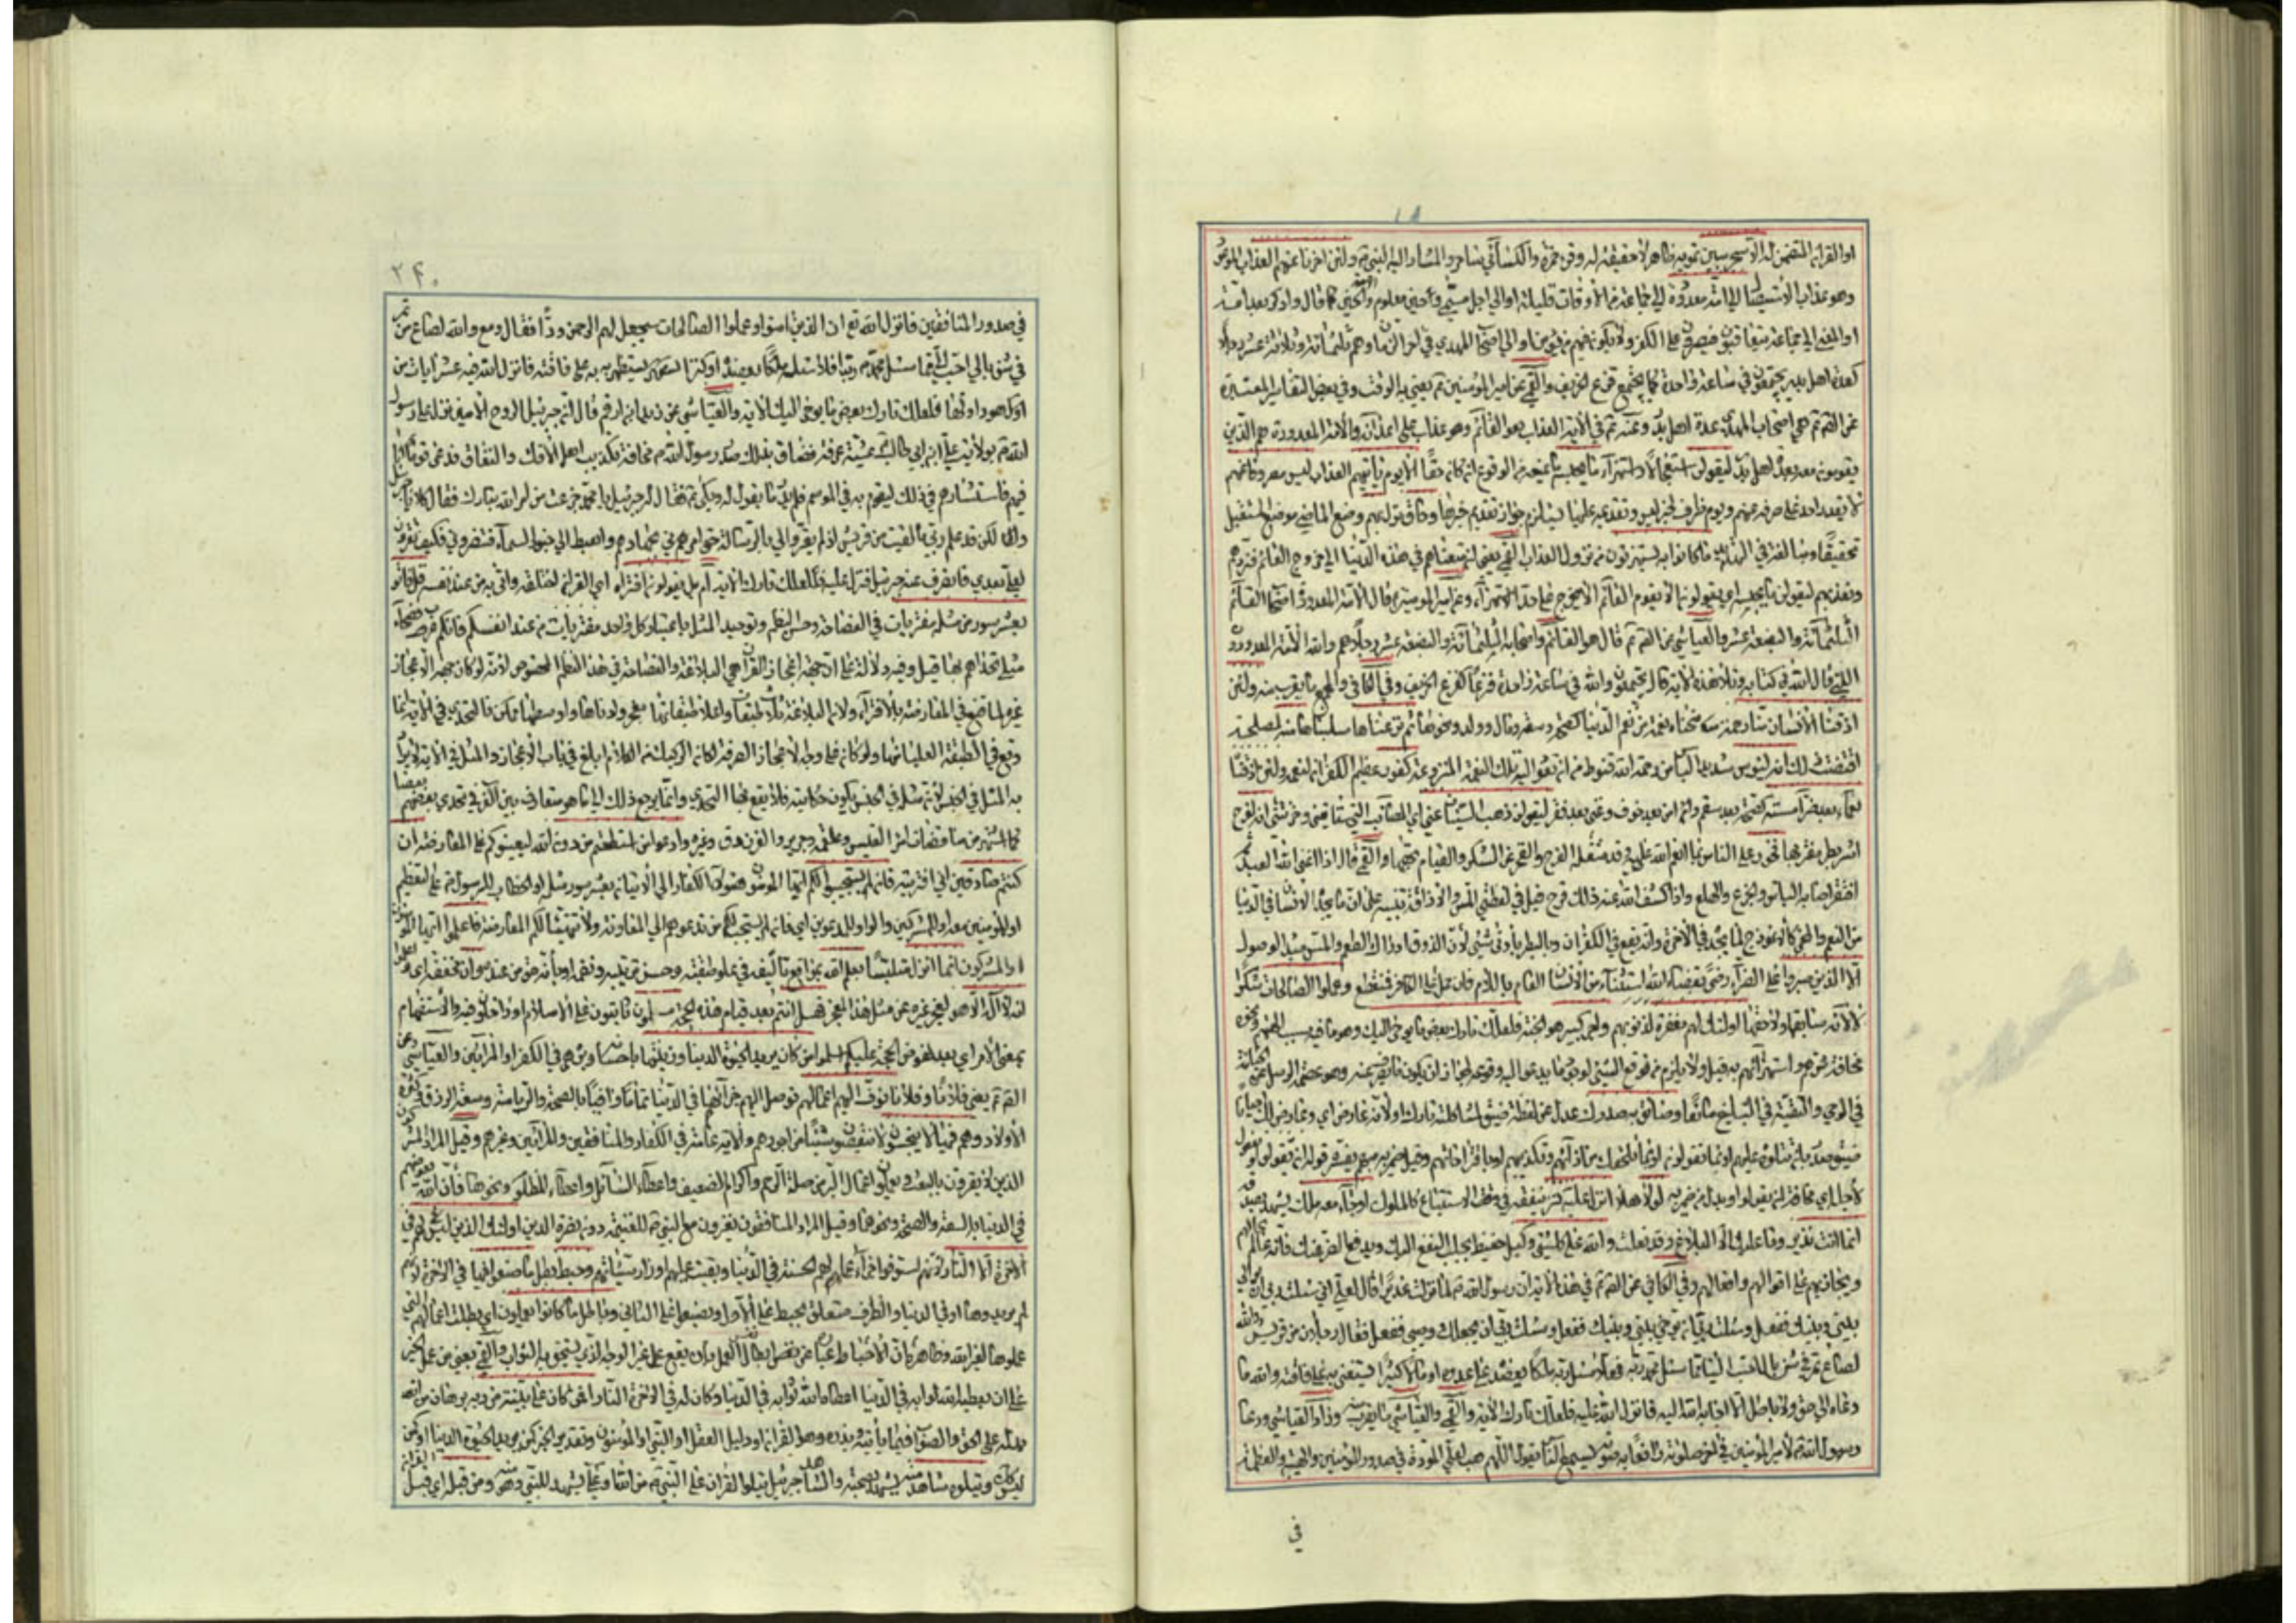 او القرآن المتضمن له الا سحر مبين تمويه ظاهر لا حقيقة له وقرء حمزة والكسائي ساحر والمشار اليه النبي ص ولئن اخرنا عنهم العذاب الموعود
وهو عذاب الاستيصال الى امة معدودة الى جماعة من الاوقات قليلة او الى اجل مسمى وحين معلوم كما قال وادكر بعد امة
او المعنى الى جماعة يتعاقبون فيصرون على الكفر ولا يكون فيهم من يؤمن او الى اصحاب المهدي في اخر الزمان وهم ثلثمائة وثلاثة عشر رجلا
كعدة اهل بدر يجتمعون في ساعة واحدة كما يجتمع قزع الخريف والقمي عن امير المؤمنين ع يعني به الوقت وفي بعض التفاسير المعتبرة
هي اصحاب المهدي عدة اهل بدر وعنه ع في الاية العذاب هو القائم وهو عذاب على اعدائه والامة المعدودة هم الذين
يقومون معه بعدد اهل بدر ليقولن استعجالا واستهزاء ما يحبسه ما يمنعه من الوقوع ان كان حقا الا يوم يأتيهم العذاب ليس مصروفا عنهم
لا يقدر احد على صرفه عنهم ويوم ظرف لخبر ليس وتقدمه عليها يستلزم جواز تقديم خبرها وحاق نزل بهم وضع الماضي موضع المستقبل
تحقيقا ومبالغة في التهديد ما كانوا به يستهزئون من نزول العذاب القمي يعني ان متعناهم في هذه الدنيا الى خروج القائم فنردهم
ونعذبهم ليقولن ما يحبسه اي يقولون الا يقوم القائم الا يخرج على حد الاستهزاء وعن امير المؤمنين ع قال الامة المعدودة اصحاب القائم
الثلثمائة والبضعة عشر والعياشي عن ع قال هو القائم واصحابه الثلثمائة والبضعة عشر رجلا هم والله الامة المعدودة
التي قال الله في كتابه وتلا هذه الاية قال يجتمعون والله في ساعة واحدة قزعا كقزع الخريف وفي الكافي والمجمع ما يقرب منه ولئن
اذقنا الانسان منا رحمة منحناه نعمة من نعم الدنيا كصحة وسعة ومال وولد ونحوها ثم نزعناها سلبناها منه لمصلحة
اقتضت ذلك انه ليؤس شديد الياس من رحمة الله قنوط من ان تعود اليه تلك النعمة المنزوعة كفور عظيم الكفران لنعمه ولئن اذقناه
نعماء بعد ضراء مسته كصحة بعد سقم وامن بعد خوف وغنى بعد فقر ليقولن ذهب السيئات عني اي المصائب التي سائتني وحزنتني انه لفرح
اشر بطر مغتر بها فخور على الناس بما انعم الله عليه قد شغله الفرح والفخر عن الشكر والقيام بحقها والقمي قال اذا اغنى الله العبد ثم
افتقر اصابه الياس والجزع والهلع واذا كشف الله عنه ذلك فرح قيل في لفظتي المس والاذاقة تنبيه على ان ما يجد الانسان في الدنيا
من النعم والمحن كالانموذج لما يجد في الاخرة وانه يقع في الكفران والبطر بادنى شيء لان الذوق ادراك الطعم والمس مبدأ الوصول
الا الذين صبروا على الضراء رضى بقضاء الله استثناء من الانسان العام باللام فان حمل على الكافر فمنقطع وعملوا الصالحات شكرا
لالائه سابقها ولاحقها اولئك لهم مغفرة لذنوبهم واجر كبير هو الجنة فلعلك تارك بعض ما يوحى اليك وهو ما فيه سب الهتهم ونحوه
مخافة ردهم واستهزائهم به قيل ولا يلزم من توقع الشيء لوجود ما يدعو اليه وقوعه لجواز ان يكون ما يصرف عنه وهو عصمة الرسل عن الخيانة
في الوحي والتقية في التبليغ مانعا وضائق به صدرك عدل عن لفظة ضيق لمشاكلة تارك ولانه عارض اي وعارض لك احيانا
ضيق صدر بان تتلوه عليهم ان يقولوا لولا
لاجل اي مخافة ان يقولوا او بدل من ضمير به لولا هلا انزل عليه كنز ينفقه في الاستتباع كالملوك او جاء معه ملك يشهد بصدقه
انما انت نذير وما عليك الا البلاغ وقد فعلت والله على كل شيء وكيل حفيظ يجلب النفع اليك ويدفع الضر عنك فانه عالم بحالهم
ويجازيهم على اقوالهم وافعالهم وفي الكافي عن ع في هذه الاية ان رسول الله ص لما نزل غدير قال لعلي اني سئلت ربي ان يوالي
بيني وبينك ففعل وسئلت ربي ان يواخي بيني وبينك ففعل وسئلت ربي ان يجعلك وصيي ففعل فقال رجلان من قريش والله
لصاع تمر في شن بال احب الينا مما سئل محمد ربه فهلا سئل ربه ملكا يعضده على عدوه او كنزا يستغني به عن فاقته والله ما
دعاه الى حق ولا باطل الا اجابه الله اليه فانزل الله عليه فلعلك تارك الاية والقمي والعياشي ما يقرب منه وزاد العياشي ودعا
رسول الله ص لامير المؤمنين في اخر صلوته رافعا به صوته يسمع الناس يقول اللهم هب لعلي المودة في صدور المؤمنين والهيبة والعظمة
في
٢٤٠
في صدور المنافقين فانزل الله تع ان الذين امنوا وعملوا الصالحات سيجعل لهم الرحمن ودا فقال رمع والله لصاع من تمر
في شن بال احب الي مما سئل محمد ص ربه افلا سئله ملكا يعضده او كنزا يستظهر به على فاقته فانزل الله فيه عشر ايات من
اول هود اولها فلعلك تارك بعض ما يوحى اليك الاية والعياشي عن زيد بن ارقم قال ان جبرئيل الروح الامين نزل على رسول
الله ص بولاية علي ابن ابي طالب عشية عرفة فضاق بذلك صدر رسول الله ص مخافة تكذيب اهل الافك والنفاق فدعى قوما انا
فيهم فاستشارهم في ذلك ليقوم به في الموسم فلم ندر ما نقول له وبكى ص فقال له جبرئيل يا محمد جزعت من امر الله تبارك فقال كلا يا جبرئيل
ولكن قد علم ربي ما لقيت من قريش اذ لم يقروا لي بالرسالة حتى امرني بجهادهم واهبط الي جنودا من السماء فنصروني فكيف يقرون
لعلي بعدي فانصرف عنه جبرئيل فنزل عليه فلعلك تارك الاية ام بل يقولون افتراه اي القرآن اختلقه واتى به من عند نفسه قل فاتوا
بعشر سور من مثله مفتريات في الفصاحة وحسن النظم وتوحيد المثل باعتبار كل واحد مفتريات من عند انفسكم فانكم عرب فصحاء
مثلي تحداهم بها قيل وفيه دلالة على ان جهة اعجاز القرآن هي البلاغة والفصاحة في هذا النظم المخصوص لانه لو كان جهة الاعجاز
غيره لما قنع في المعارضة بالافتراء ولان البلاغة ثلاث طبقات واعلا طبقاتها معجز وادناها واوسطها ممكن فالتحدي في الاية انما
وقع في الطبقة العليا منها ولو كان على وجه الاعجاز الصرفة لكان الركيك من الكلام ابلغ في باب الاعجاز والمثل في الاية لا يراد
به المثل في الجنس لان مثله في الجنس يكون حكايته فلا يقع بها التحدي وانما يرجع ذلك الى ما هو متعارف بين العرب في تحدي بعضهم بعضا
كما اشتهر من مناقضات امرء القيس وعلقمة وجرير والفرزدق وغيره وادعوا من استطعتم من دون الله ليعينوكم على المعارضة ان
كنتم صادقين اني افتريته فان لم يستجيبوا لكم ايها المؤمنون الكفار الى الاتيان بعشر سور مثله او الخطاب للرسول ص على التعظيم
او المؤمنين معه او للمشركين والواو للمدعوين اي فان لم يستجب لكم من تدعوهم الى المعاونة ولا تهيئا لكم المعارضة فاعلموا ايها المؤمنون
او المشركون انما انزل متلبسا بعلم الله بمواقع تاليفه في علو طبقته وحسن ترتيبه ونظمه او بانه حق من عنده وان مخففة اي واعلموا
انه لا اله الا هو لعجز غيره عن مثل هذا المعجز فهل انتم بعد قيام هذه الحجة مسلمون ثابتون على الاسلام او داخلون فيه والاستفهام
بمعنى الامر اي بعد لحوض الحجة عليكم اسلموا من كان يريد الحيوة الدنيا وزينتها باحسانه وبره هم في الكفر او المرائين والعياشي عن
ع يعني فلانا وفلانا نوف اليهم اعمالهم نوصل اليهم جزائها في الدنيا تاما وافيا بالصحة والرياسة وسعة الرزق وكثرة
الاولاد وهم فيها لا يبخسون لا ينقصون شيئا من اجورهم والاية عامة في الكفار والمنافقين والمرائين وغيرهم وقيل المراد المشركون
الذين لا يقرون بالبعث ويعملون اعمال البر من صلة الرحم واكرام الضعيف واعطاء السائل واعطاء للمظلوم ونحوها فان الله يعوضهم
في الدنيا بالسعة والصحة ونحوها وقيل المراد المنافقون يغزون مع النبي ص للغنيمة دون نصرة الدين اولئك الذين ليس لهم في
الاخرة الا النار لانهم استوفوا جزاء عملهم الحسنة في الدنيا وبقيت عليهم اوزار سيئاتهم وحبط بطل ما صنعوا فيها في الاخرة لانهم
لم يريدوها او في الدنيا والظرف متعلق بحبط على الاول وبصنعوا على الثاني وباطل ما كانوا يعملون اي بطلت اعمالهم التي
عملوها لغير الله وظاهره ان الاحباط عبارة عن نقض ابطال العمل بان يقع على غير الوجه الذي يستحق به الثواب والقمي يعني من عمل الخير
على ان يعطيه الله ثوابه في الدنيا اعطاه الله ثوابه في الدنيا وكان له في الاخرة النار افمن كان على بينة من ربه برهان من الله
يدله على الحق والصواب فيما يأتيه ويذره وهو القرآن او دليل العقل او النبي او المؤمنون وتقديره الخبر كمن يريد الحيوة الدنيا او كمن
ليس كك ويتلوه شاهد منه يشهد بصحته والشاهد جبرئيل يتلو القرآن على النبي ص من الله او علي يشهد للنبي وهو منه ومن قبله اي قبل القرآن